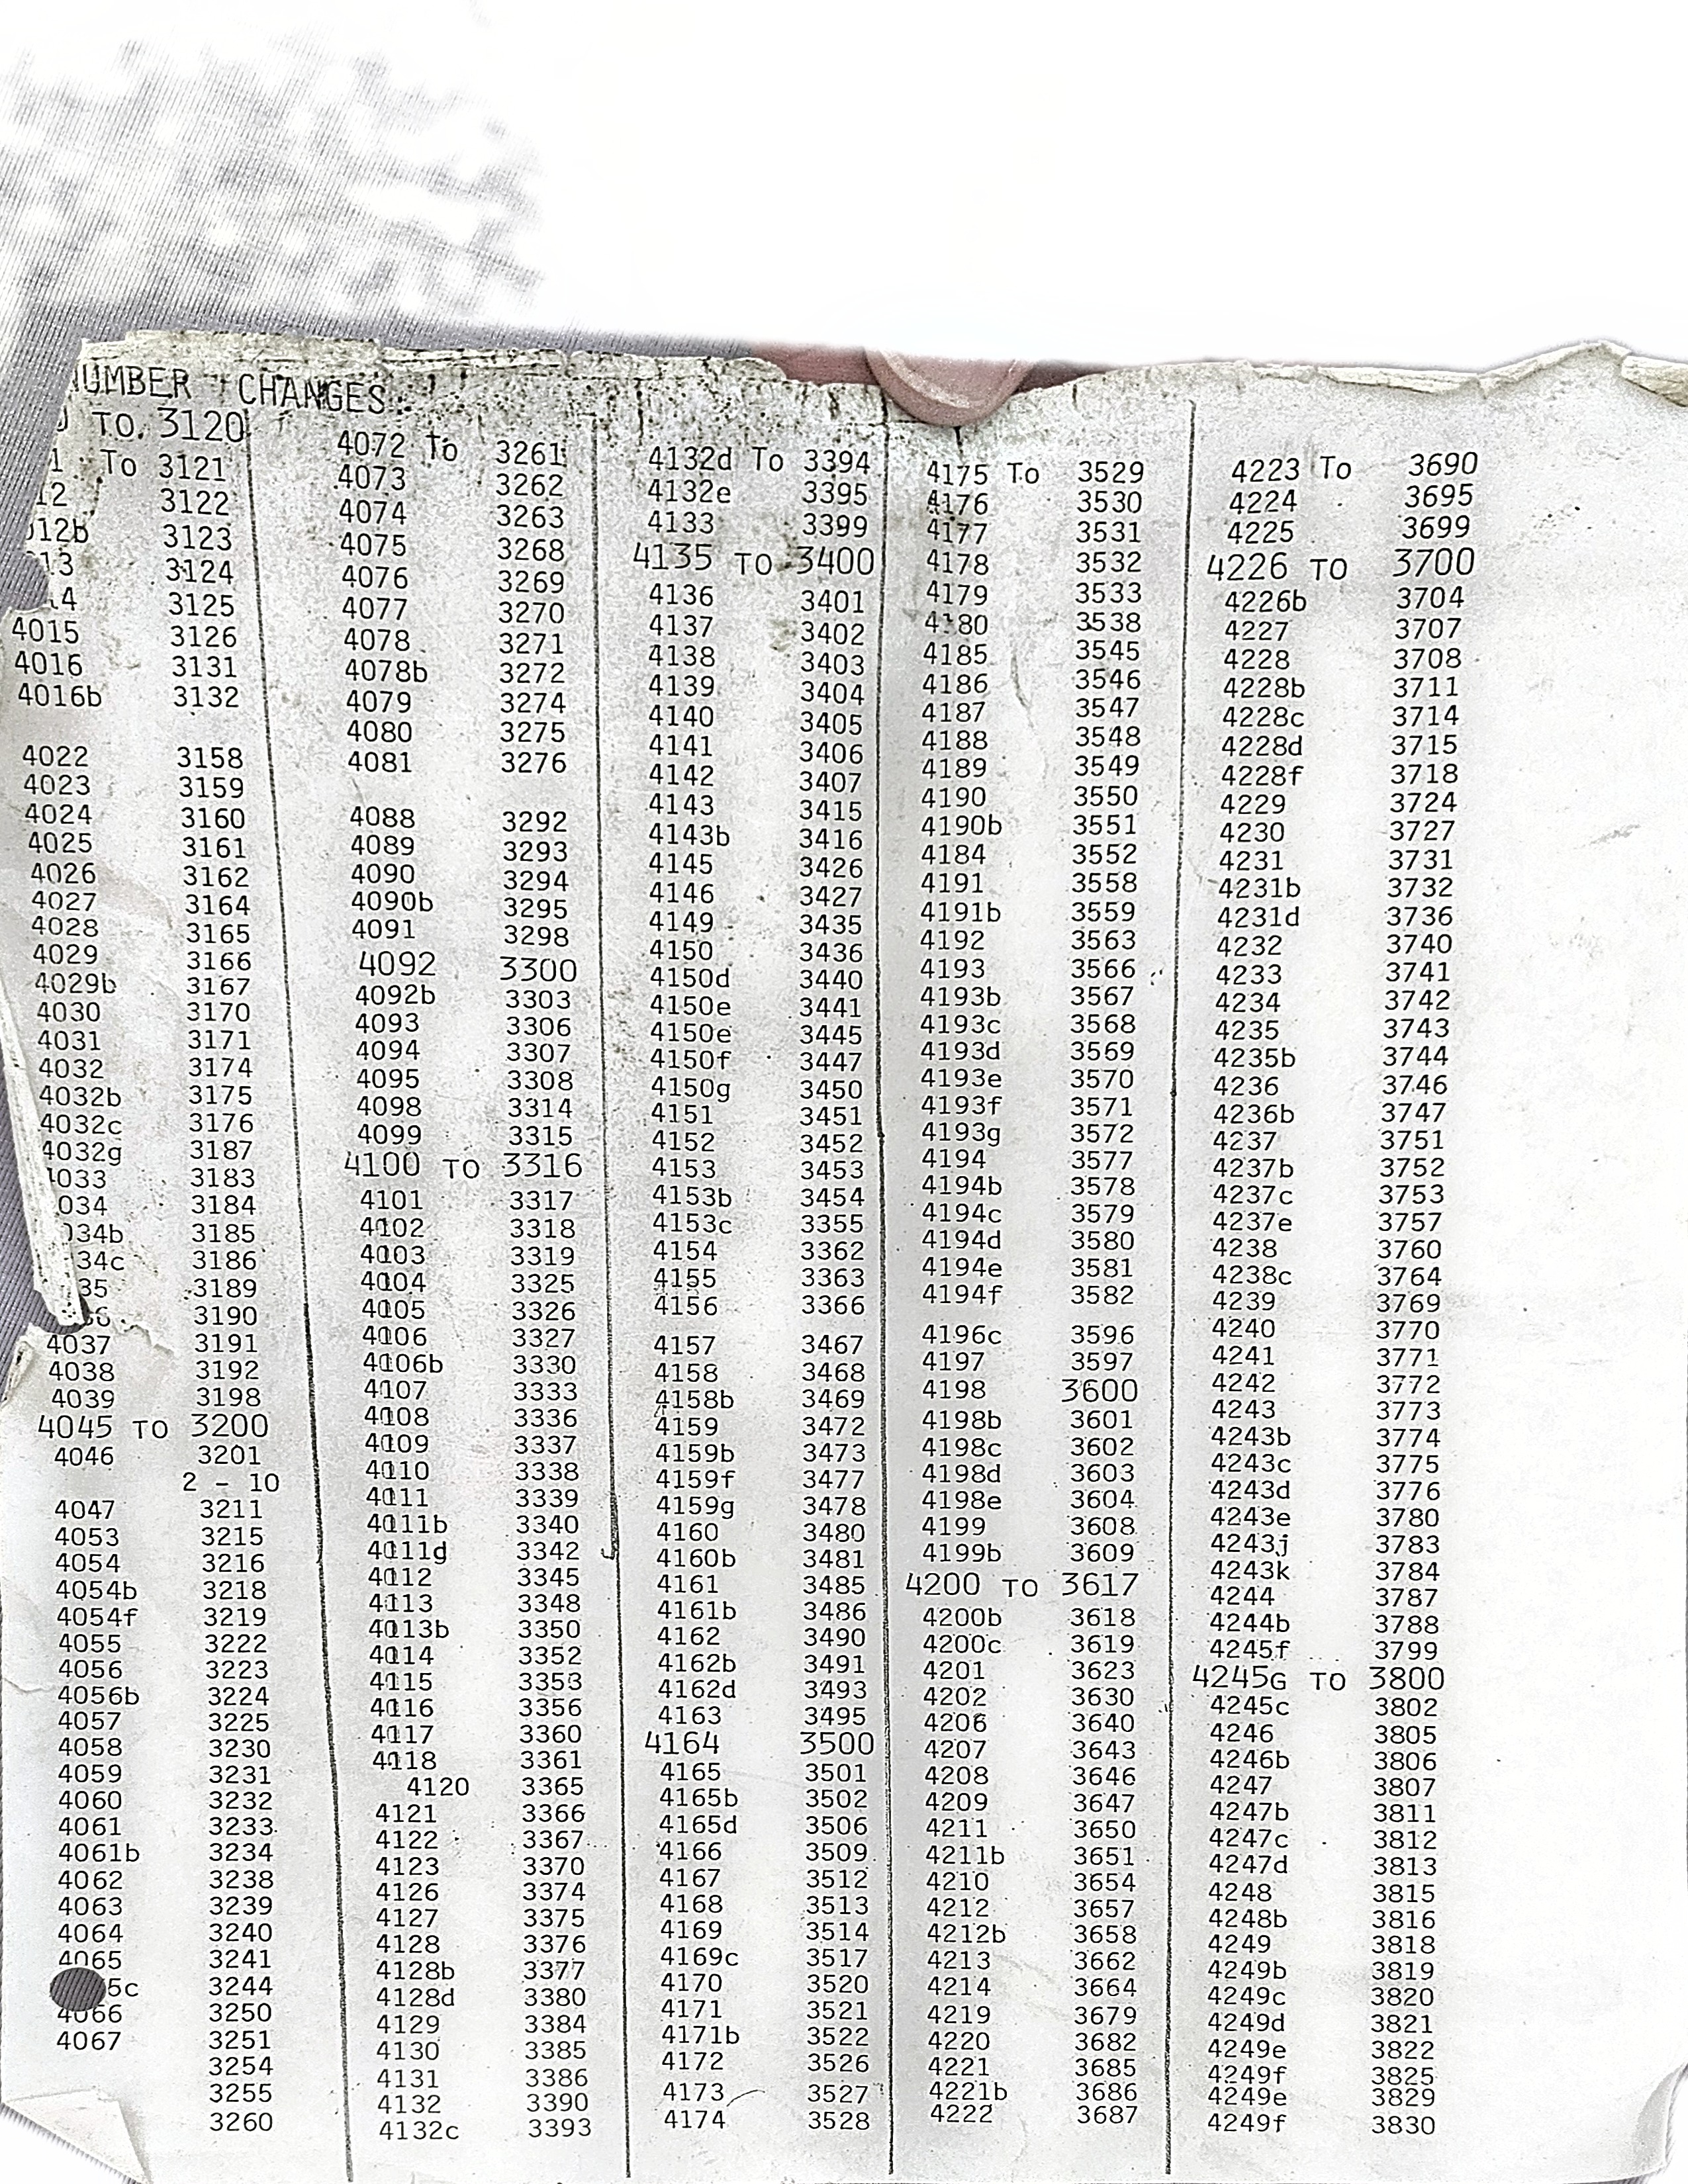 NUMBER CHANGES
TO 3120
To 3121
12 3122
012b 3123
13 3124
14 3125
4015 3126
4016 3131
4016b 3132
4022 3158
4023 3159
4024 3160
4025 3161
4026 3162
4027 3164
4028 3165
4029 3166
4029b 3167
4030 3170
4031 3171
4032 3174
4032b 3175
4032c 3176
4032g 3187
4033 3183
034 3184
034b 3185
34c 3186
35 3189
36 3190
4037 3191
4038 3192
4039 3198
4045 TO 3200
4046 3201
2 - 10
4047 3211
4053 3215
4054 3216
4054b 3218
4054f 3219
4055 3222
4056 3223
4056b 3224
4057 3225
4058 3230
4059 3231
4060 3232
4061 3233
4061b 3234
4062 3238
4063 3239
4064 3240
4065 3241
5c 3244
4066 3250
4067 3251
3254
3255
3260
4072 To 3261
4073 3262
4074 3263
4075 3268
4076 3269
4077 3270
4078 3271
4078b 3272
4079 3274
4080 3275
4081 3276
4088 3292
4089 3293
4090 3294
4090b 3295
4091 3298
4092 3300
4092b 3303
4093 3306
4094 3307
4095 3308
4098 3314
4099 3315
4100 TO 3316
4101 3317
4102 3318
4103 3319
4104 3325
4105 3326
4106 3327
4106b 3330
4107 3333
4108 3336
4109 3337
4110 3338
4111 3339
4111b 3340
4111d 3342
4112 3345
4113 3348
4113b 3350
4114 3352
4115 3353
4116 3356
4117 3360
4118 3361
4120 3365
4121 3366
4122 3367
4123 3370
4126 3374
4127 3375
4128 3376
4128b 3377
4128d 3380
4129 3384
4130 3385
4131 3386
4132 3390
4132c 3393
4132d To 3394
4132e 3395
4133 3399
4135 TO 3400
4136 3401
4137 3402
4138 3403
4139 3404
4140 3405
4141 3406
4142 3407
4143 3415
4143b 3416
4145 3426
4146 3427
4149 3435
4150 3436
4150d 3440
4150e 3441
4150e 3445
4150f 3447
4150g 3450
4151 3451
4152 3452
4153 3453
4153b 3454
4153c 3355
4154 3362
4155 3363
4156 3366
4157 3467
4158 3468
4158b 3469
4159 3472
4159b 3473
4159f 3477
4159g 3478
4160 3480
4160b 3481
4161 3485
4161b 3486
4162 3490
4162b 3491
4162d 3493
4163 3495
4164 3500
4165 3501
4165b 3502
4165d 3506
4166 3509
4167 3512
4168 3513
4169 3514
4169c 3517
4170 3520
4171 3521
4171b 3522
4172 3526
4173 3527
4174 3528
4175 To 3529
4176 3530
4177 3531
4178 3532
4179 3533
4180 3538
4185 3545
4186 3546
4187 3547
4188 3548
4189 3549
4190 3550
4190b 3551
4184 3552
4191 3558
4191b 3559
4192 3563
4193 3566
4193b 3567
4193c 3568
4193d 3569
4193e 3570
4193f 3571
4193g 3572
4194 3577
4194b 3578
4194c 3579
4194d 3580
4194e 3581
4194f 3582
4196c 3596
4197 3597
4198 3600
4198b 3601
4198c 3602
4198d 3603
4198e 3604
4199 3608
4199b 3609
4200 TO 3617
4200b 3618
4200c 3619
4201 3623
4202 3630
4206 3640
4207 3643
4208 3646
4209 3647
4211 3650
4211b 3651
4210 3654
4212 3657
4212b 3658
4213 3662
4214 3664
4219 3679
4220 3682
4221 3685
4221b 3686
4222 3687
4223 To 3690
4224 3695
4225 3699
4226 TO 3700
4226b 3704
4227 3707
4228 3708
4228b 3711
4228c 3714
4228d 3715
4228f 3718
4229 3724
4230 3727
4231 3731
4231b 3732
4231d 3736
4232 3740
4233 3741
4234 3742
4235 3743
4235b 3744
4236 3746
4236b 3747
4237 3751
4237b 3752
4237c 3753
4237e 3757
4238 3760
4238c 3764
4239 3769
4240 3770
4241 3771
4242 3772
4243 3773
4243b 3774
4243c 3775
4243d 3776
4243e 3780
4243j 3783
4243k 3784
4244 3787
4244b 3788
4245f 3799
4245G TO 3800
4245c 3802
4246 3805
4246b 3806
4247 3807
4247b 3811
4247c 3812
4247d 3813
4248 3815
4248b 3816
4249 3818
4249b 3819
4249c 3820
4249d 3821
4249e 3822
4249f 3825
4249e 3829
4249f 3830